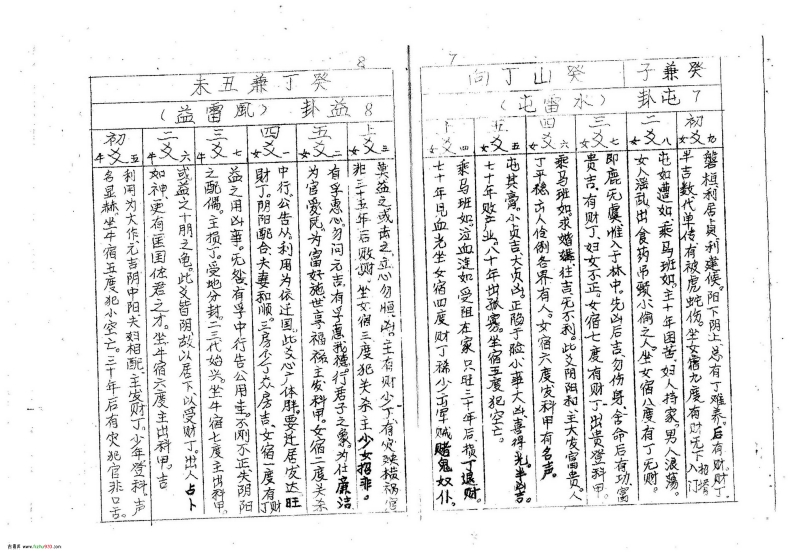 7
癸山丁向
癸兼子
7 屯卦
(水雷屯)
初爻 女九
磐桓利居贞利建侯。阳下阴上,总有丁难养,后有财。财丁
半吉数代单传有被虎蛇伤。坐女宿九度有财无丁
二爻 女八
屯如遭如,乘马班如。主十年困苦,妇人持家,男人浪荡。
女人淫乱出食药吊颈小偷之人坐女宿八度有丁无财。
三爻 女七
即鹿无虞,惟入于林中。先凶后吉,勿伤身舍命后有功富
贵吉,有财丁,妇女不正女宿七度有财丁出贵登科甲。
四爻 女六
乘马班如,求婚媾,往吉无不利。此爻阴阳和,主大发富贵。
丁平稳出人伦倒各界有人。女宿六度发科甲有名声。
五爻 女五
屯其膏。小贞吉大贞凶。正陷于险小事大凶喜得先半凶吉。
七十年败产业,八十年出孤寡。坐宿五度犯空亡。
上爻 女四
乘马班如,泣血涟如受阻在家,只旺三十年后,损丁退财。
七十年见血光坐女宿四度财丁稀少出军贼赌鬼奴仆。
8
癸丁兼丑未
8 益卦
(風雷益)
上爻 女三
莫益之,或击之,立心勿恒,凶。主有财少丁有灾殃横祸官
非三十五年后败财。坐女宿三度犯关杀主少女招非。
五爻 女二
有孚惠心勿问元吉,有孚惠我德。行君子之象,为仕廉洁
为官爱民,为富好施世享福禄,主发科甲。女宿二度关杀
四爻 女一
中行,公告从利用为依迁国,此爻心广体胖。要迁居发达旺
财丁。阴阳配合,夫妻和顺。三房少丁众房吉、女宿一度有丁财
三爻 牛七
益之用凶事。无咎有孚中行告公用圭。不刚不正失阴阳
之配偶。主损丁。受地分封,二三代始兴。坐牛宿七度主出科甲。
二爻 牛六
或益之十朋之龟。此爻皆阴故以居下以受财丁。出人占卜
如神更有匡国体君之才。坐牛宿六度主出科甲。吉
初爻 牛五
利用为大作,元吉阴中阳夫妇相配,主发财丁。少年登科。声
名显赫。坐牛宿五度犯小空亡。三十年后有灾犯官非口舌。